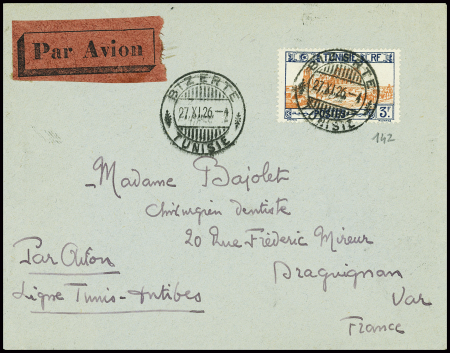 Par Avion
BIZERTE
27.XI.26.-1
TUNISIE
BIZERTE
27.XI.26.-1
TUNISIE
TUNISIE RF
3F
142
Madame Bajolet
Chirurgien dentiste
20 Rue Fréderic Mireur
Draguignan
Var
France
Par Avion
Ligne Tunis-Antibes